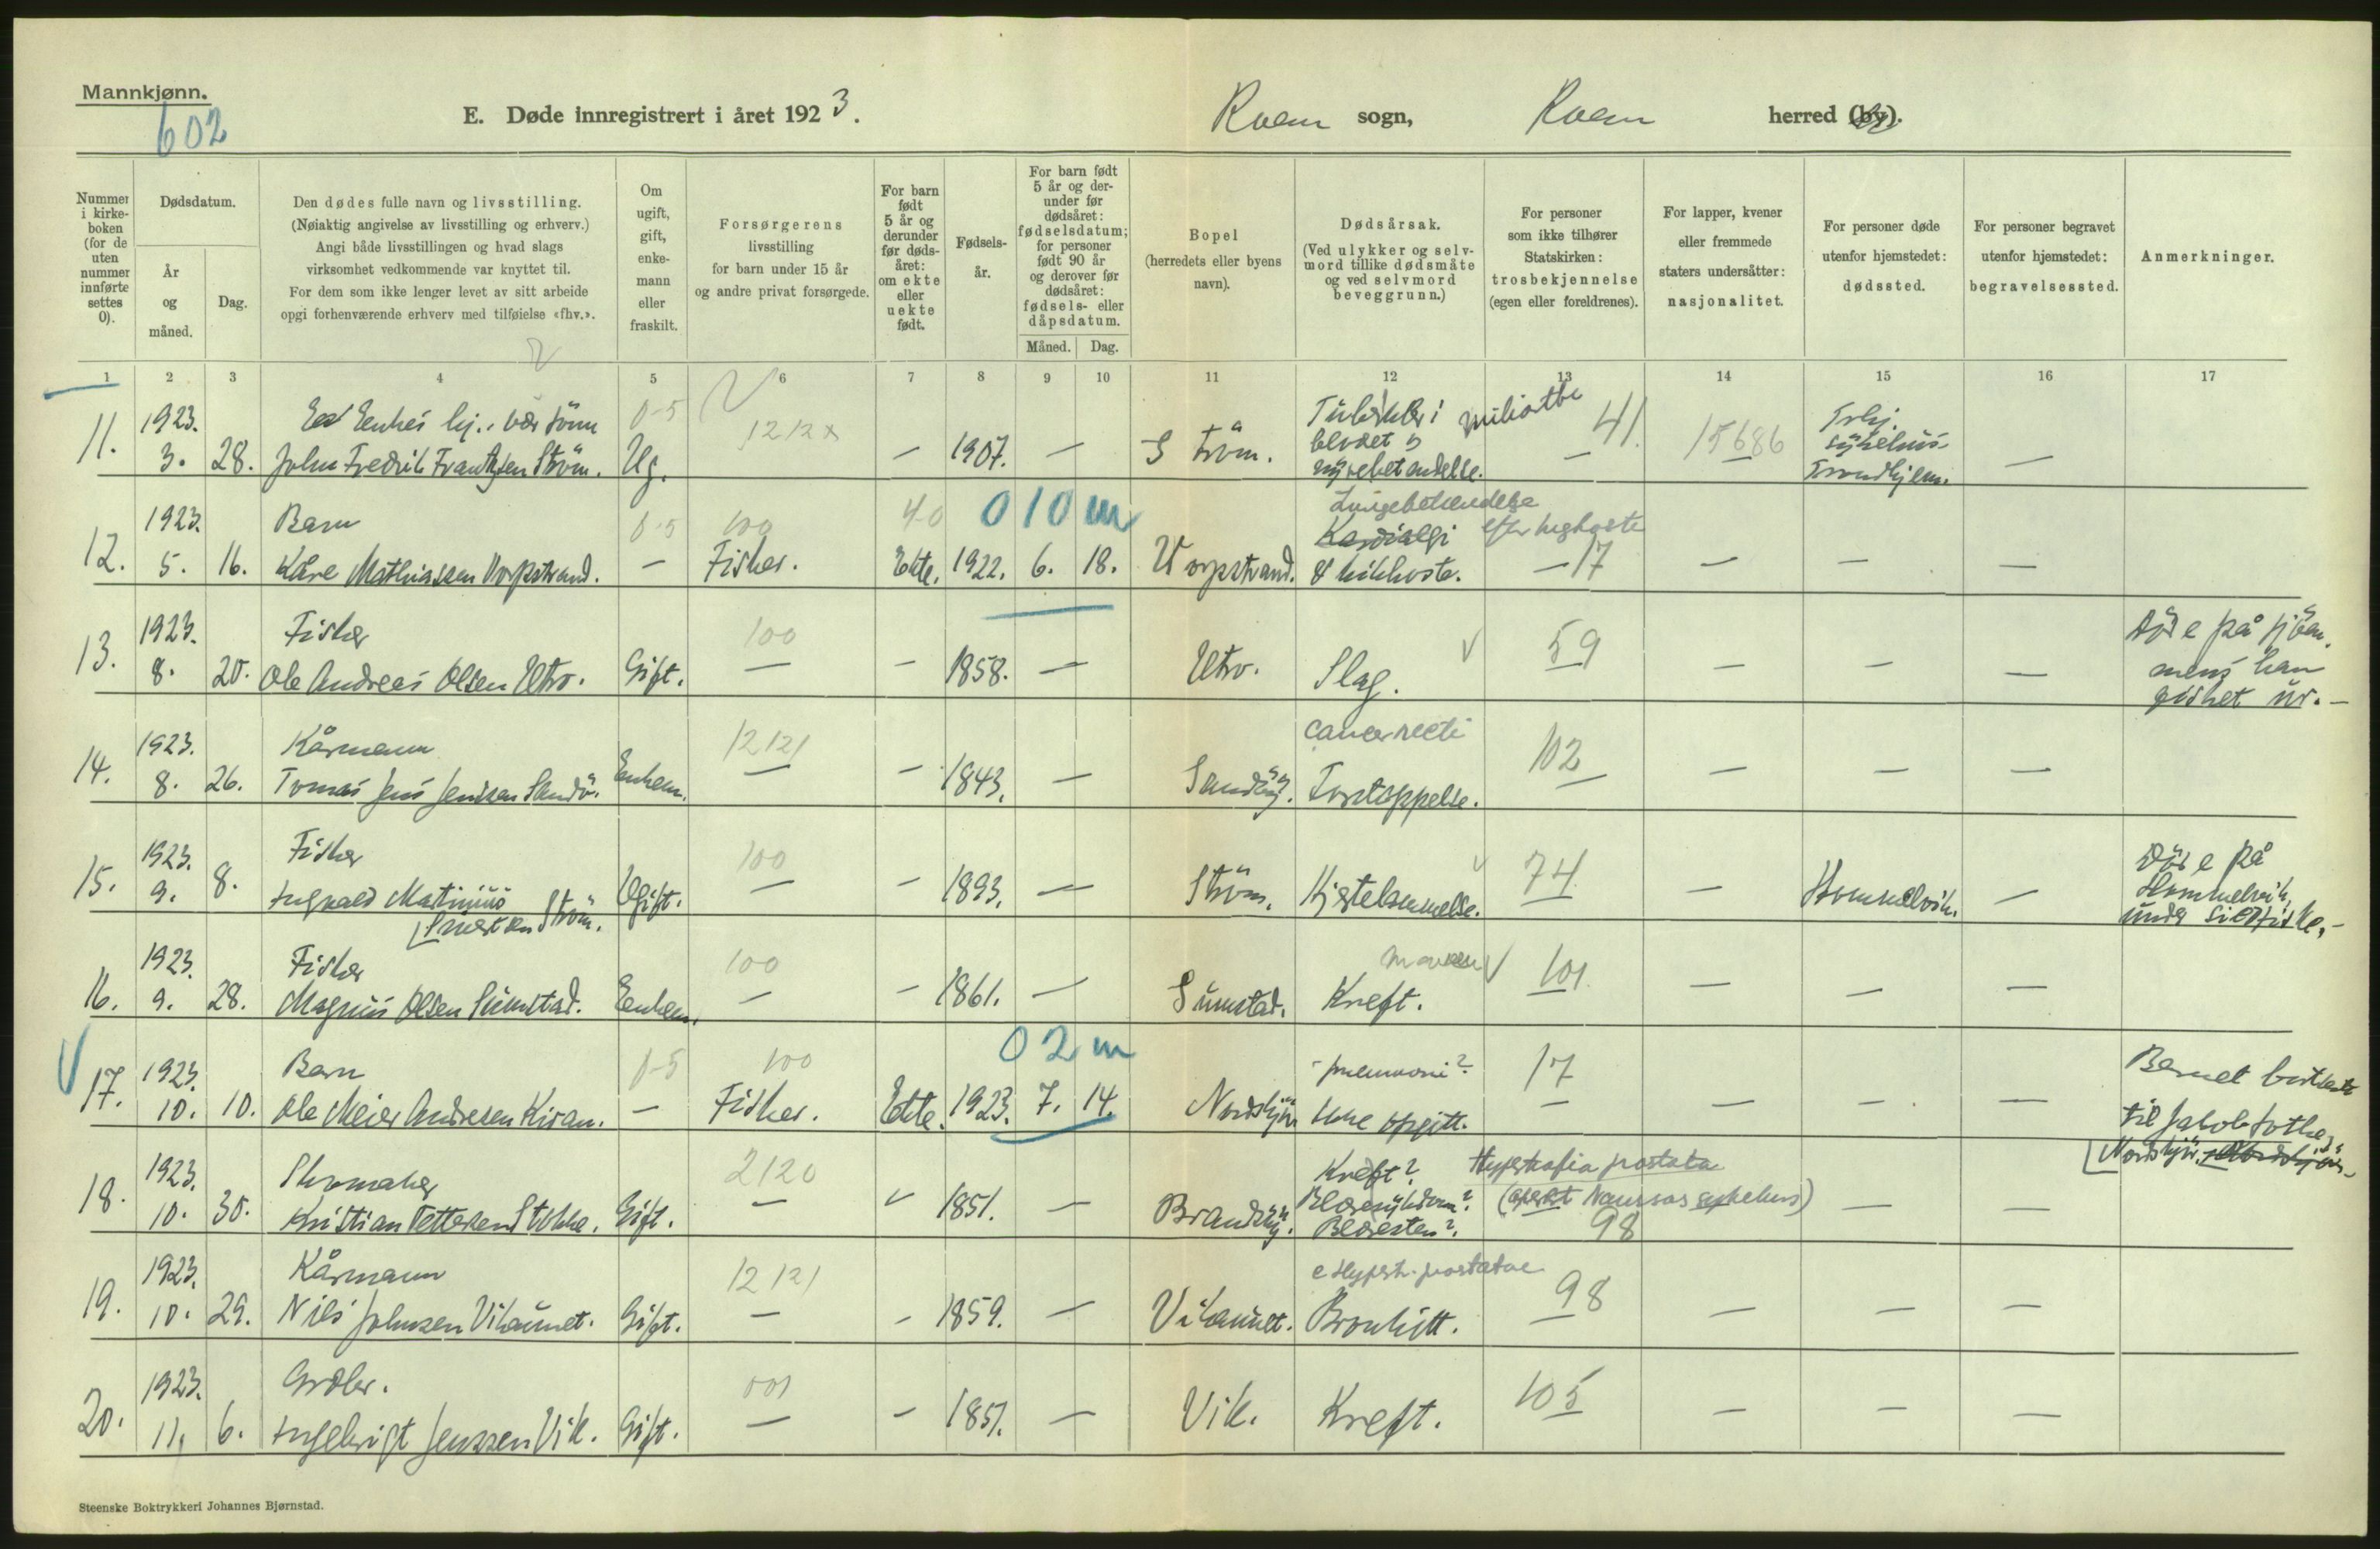 Mannkjønn.
602
E. Døde innregistrert i året 1923.
Roan sogn, Roan herred (by).
Nummer i kirkeboken (for de uten nummer innførte settes 0).
Dødsdatum.
År og måned.
Dag.
Den dødes fulle navn og livsstilling.
(Nøiaktig angivelse av livsstilling og erhverv.)
Angi både livsstillingen og hvad slags
virksomhet vedkommende var knyttet til.
For dem som ikke lenger levet av sitt arbeide
opgi forhenværende erhverv med tilføielse «fhv.».
Om ugift, gift, enkemann eller fraskilt.
Forsørgerens
livsstilling
for barn under 15 år
og andre privat forsørgede.
For barn født 5 år og derunder før dødsåret: om ekte eller uekte født.
Fødselsår.
For barn født 5 år og derunder før dødsåret: fødselsdatum; for personer født 90 år og derover før dødsåret: fødsels- eller dåpsdatum.
Måned. Dag.
Bopel
(herredets eller byens
navn).
Dødsårsak.
(Ved ulykker og selvmord tillike dødsmåte og ved selvmord beveggrunn.)
For personer
som ikke tilhører
Statskirken:
trosbekjennelse
(egen eller foreldrenes).
For lapper, kvener
eller fremmede
staters undersåtter:
nasjonalitet.
For personer døde
utenfor hjemstedet:
dødssted.
For personer begravet
utenfor hjemstedet:
begravelsessted.
Anmerkninger.
1 2 3 4 5 6 7 8 9 10 11 12 13 14 15 16 17
0-5 1212x Tuberkler i miliærtbc 41. 15686 Trhj.
11. 1923. blodet sykehus
3. 28. John Fredrik Frantzsen Strøm. Ug. — 1907. — Strøm. nyrebetendelse. — — Trondhjem. —
Lungebetændelse
12. 1923. Barn 0-5 100 40 010m Kardialgi efter kighoste
5. 16. Kåre Mathiassen Vorpstrand. — Fisker. Ekte. 1922. 6. 18. Vorpstrand. & kikhoste. — 17 — — —
13. 1923. Fisker 100 59 Døde på sjøen,
8. 20. Ole Andreas Olsen Utro. Gift. — — 1858. — Utro. Slag. — — — mens han
fisket ur. —
14. 1923. Kårmann 1212/ cancer recti 102
8. 26. Tomas Jens Jenssen Sandø. Enkem. — — 1843. — Sandøy. Forstoppelse. — — —
15. 1923. Fisker 100 74 Døde på
9. 8. Ingvald Martinius Ugift. — — 1893. — Strøm. Hjertelammelse. — Hommelvik. — Hommelvik,
Strøm. under sildfiske, —
16. 1923. Fisker 100 maven 101
9. 28. Magnus Olsen Sumstad. Enkem. — — 1861. — Sumstad. Kreft. — — —
17. 1923. Barn 0-5 100 02m pneumoni? 17 Barnet
10. 10. Ole Meier Andresen Kiran. — Fisker. Ekte. 1923. 7. 14. Nordskjør. Ikke opgitt. — — — — til Jakob
Nordskjør.
18. 1923. Skomaker 2120 Kreft? Hypertrofia prostata
10. 30. Kristian Pettersen Stokke. Gift. — 1851. — Brandsøy. Blæresykdom? (operert Namsos sykehus) — —
Blæresten?. 98
19. 1923. Kårmann 1212/ c Hypertr. prostatae 98
10. 29. Nils Johnsen Vikaunet. Gift. — — 1859. — Vikaunet. Bronkitt. — — —
20. 1923. Grdbr. 001 105
11. 6. Ingebrigt Jenssen Vik. Gift. — — 1851. — Vik. Kreft. — — —
Steenske Boktrykkeri Johannes Bjørnstad.